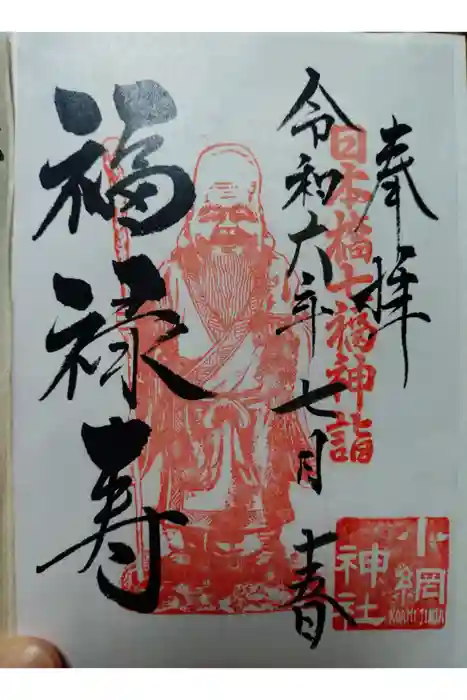 奉拝
日本橋七福神詣
令和六年七月
福禄寿
小網
神社
KOAMI JINJA